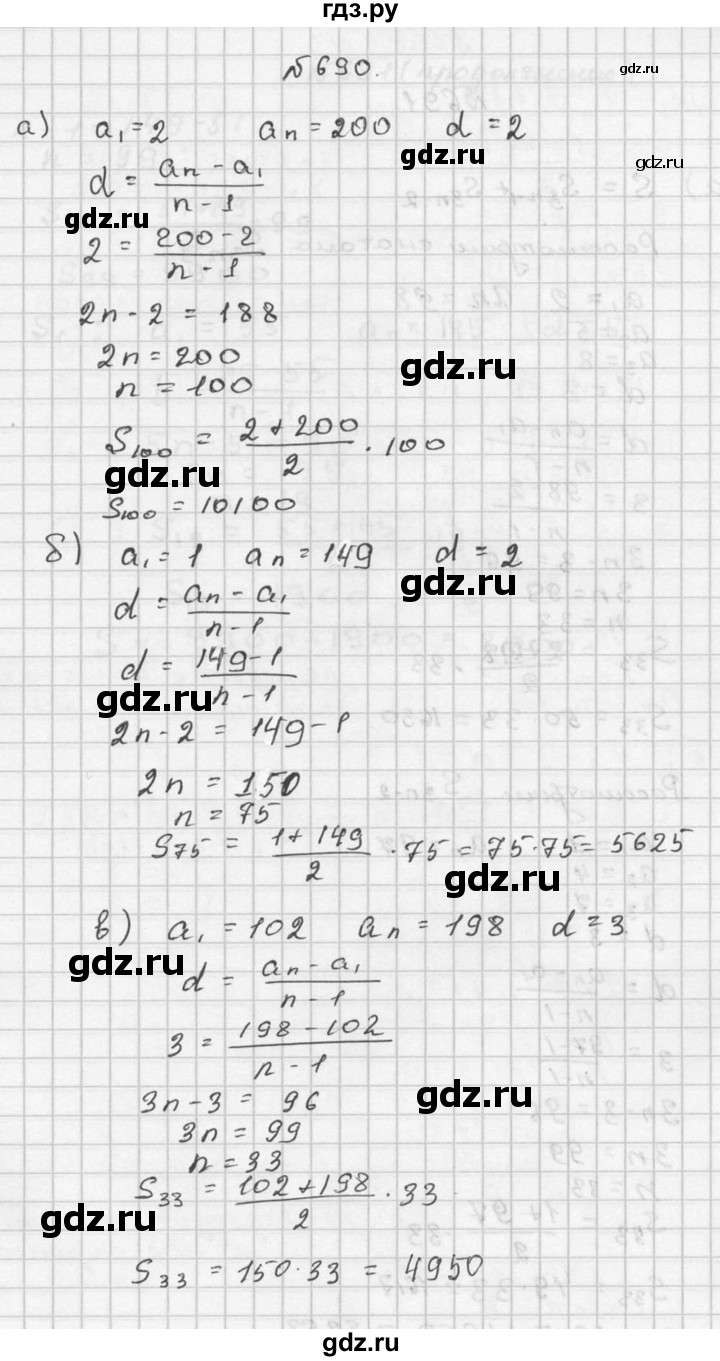 гдз.ру
№ 690.
gdz.ru
а) a₁ = 2 aₙ = 200 d = 2
gdz.ru
gdz.ru
d = (aₙ - a₁)/(n - 1)
gdz.ru
2 = (200 - 2)/(n - 1)
2n - 2 = 188
2n = 200
gdz.ru
n = 100
S₁₀₀ = (2 + 200)/2 · 100
gdz.ru
S₁₀₀ = 10100
б) a₁ = 1 aₙ = 149 d = 2
gdz.ru
d = (aₙ - a₁)/(n - 1)
d = (149 - 1)/(n - 1)
gdz.ru
2n - 2 = 149 - 1
2n = 150
n = 75
S₇₅ = (1 + 149)/2 · 75 = 75·75 = 5625
gdz.ru
в) a₁ = 102 aₙ = 198 d = 3
gdz.ru
d = (aₙ - a₁)/(n - 1)
3 = (198 - 102)/(n - 1)
gdz.ru
3n - 3 = 96
3n = 99
n = 33
S₃₃ = (102 + 198)/2 · 33
gdz.ru
S₃₃ = 150·33 = 4950
gdz.ru